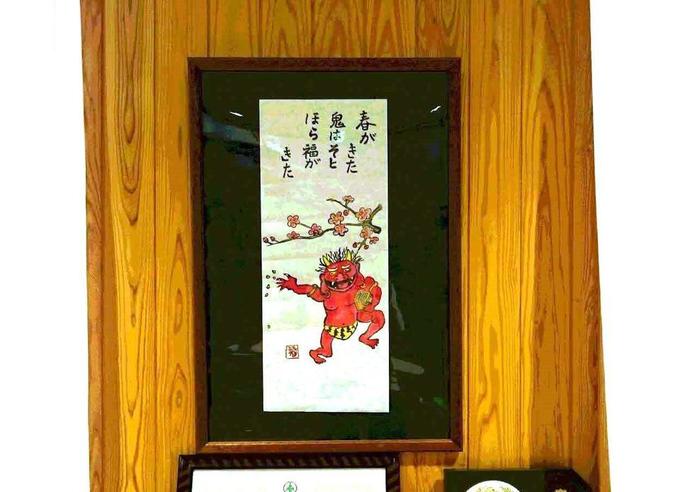 春が
きた
鬼はそと
ほら福が
きた